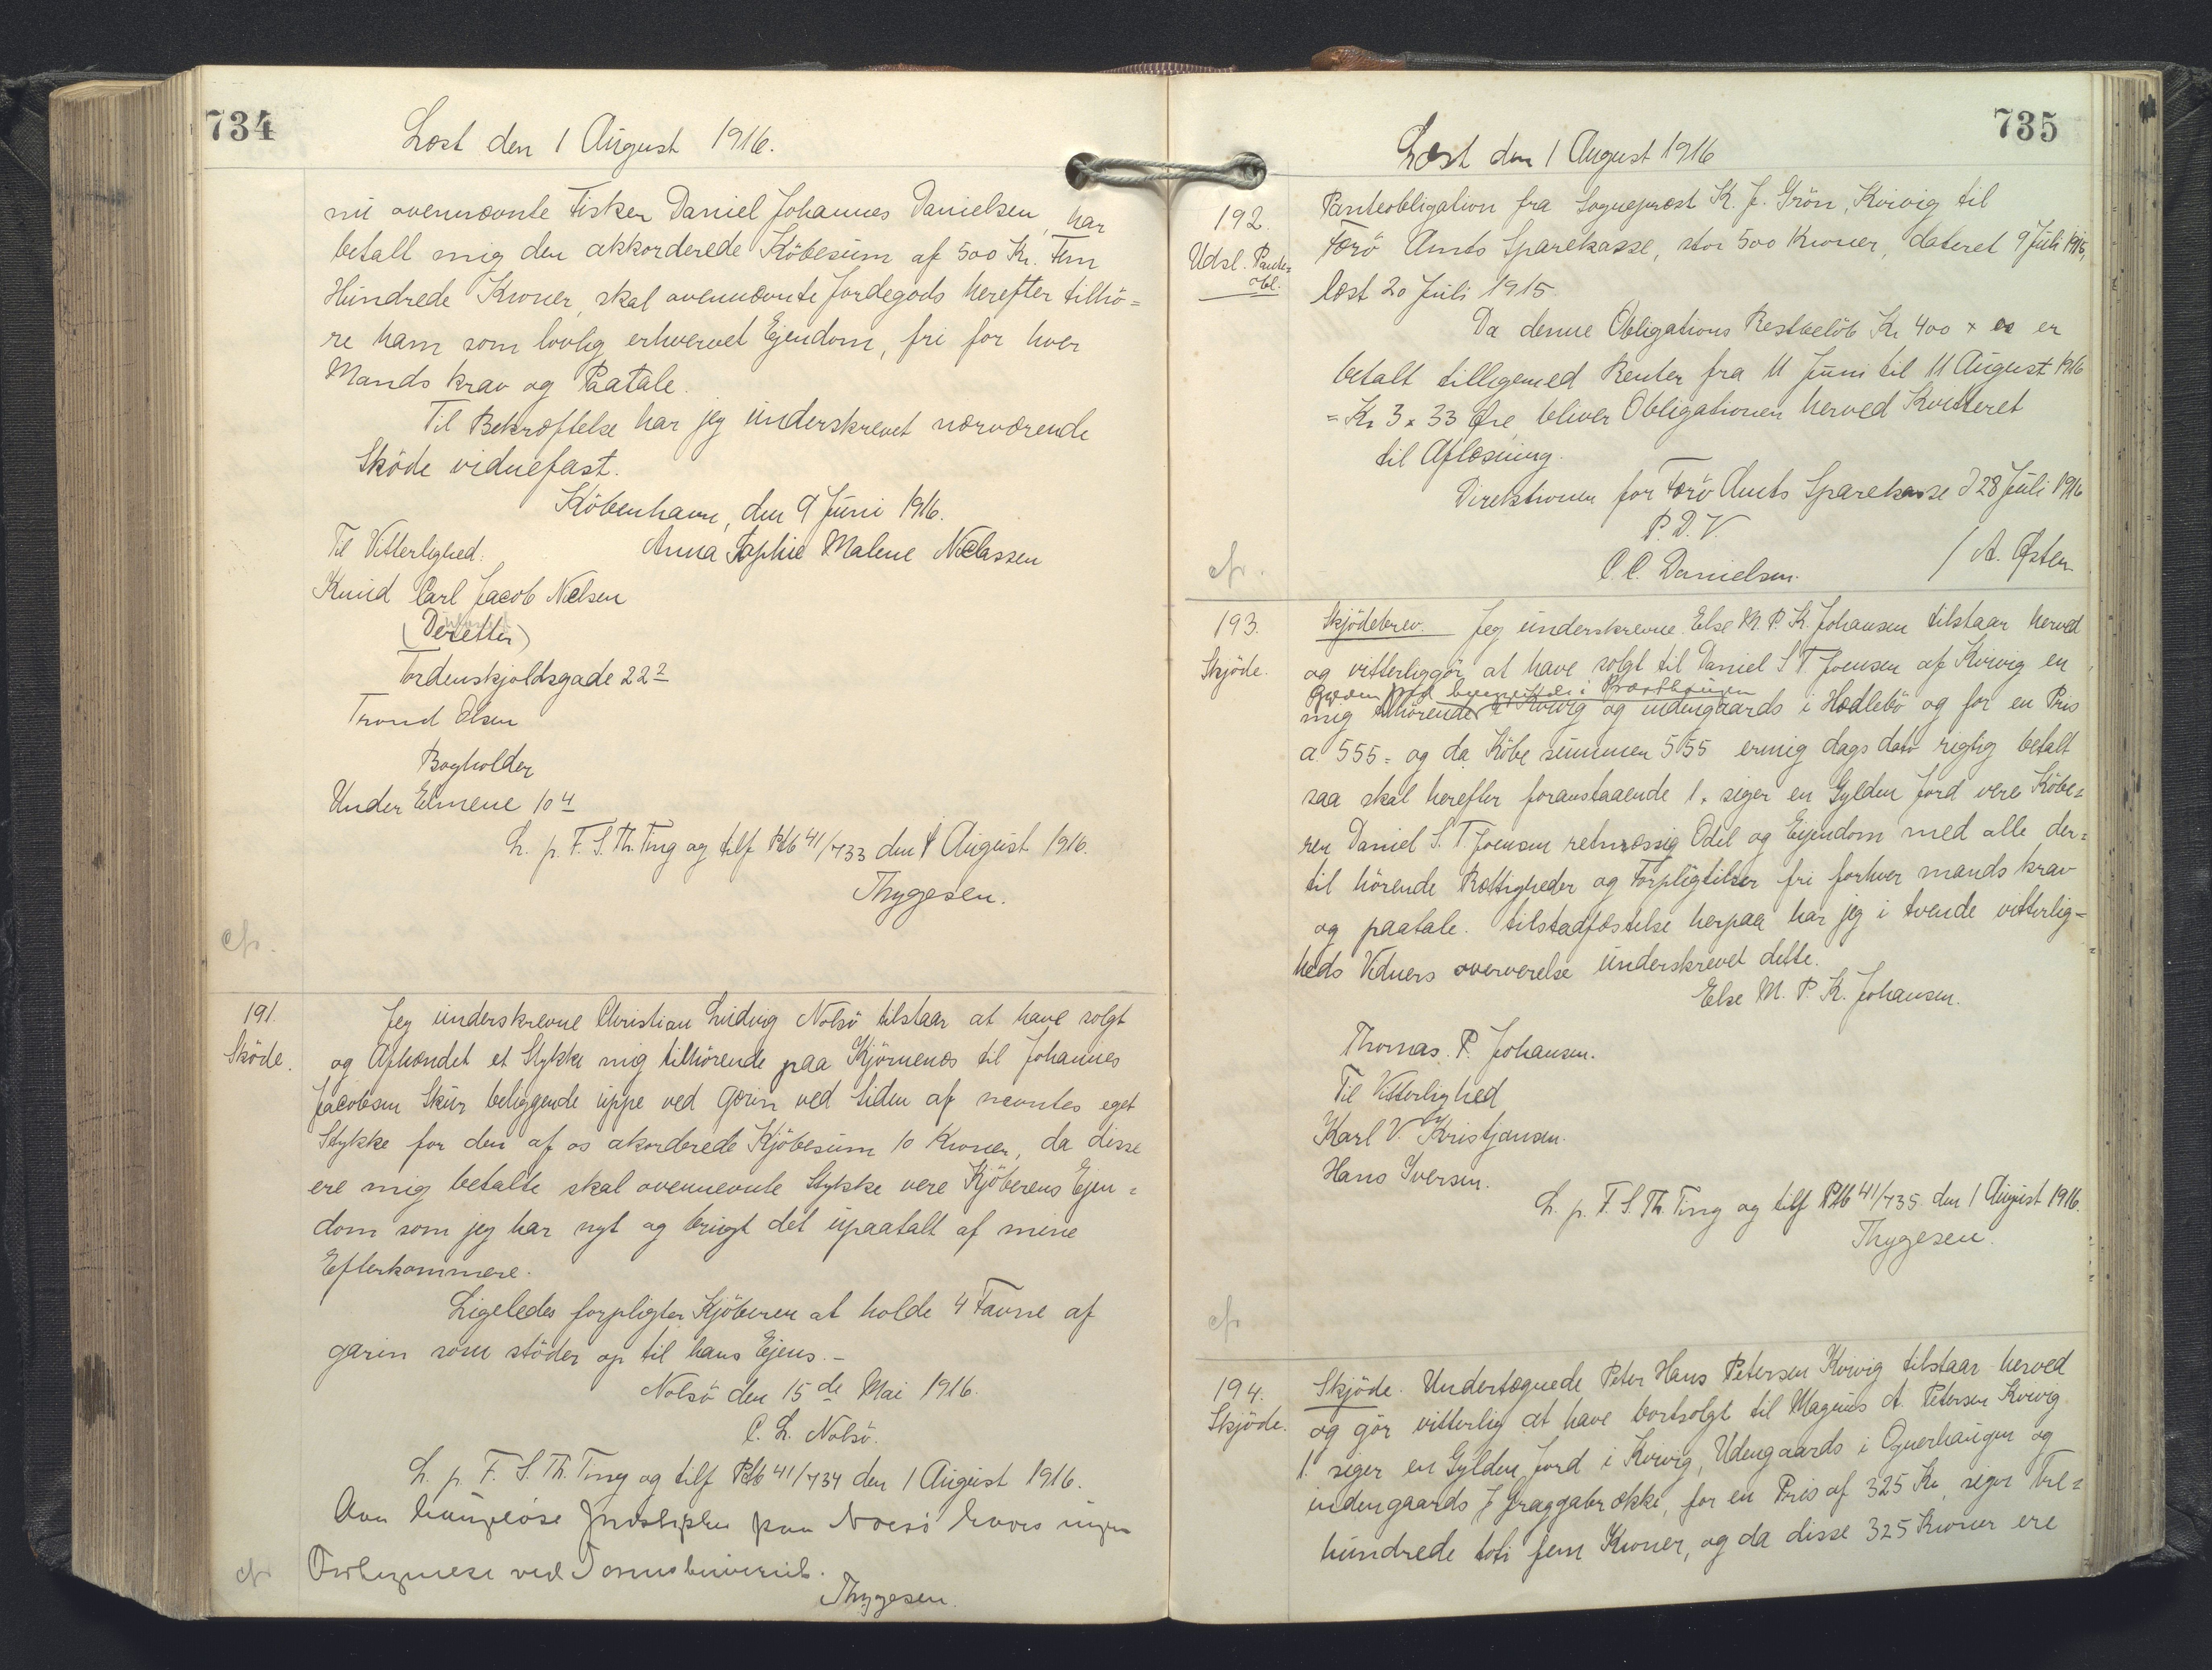 734
Læst den 1 August 1916.
nu ovennævnte Fisker Daniel Johannes Danielsen, har
betalt mig den akkorderede Köbesum af 500 Kr. Fem
Hundrede Kroner, skal ovennævnte Jordegods herefter tilhö=
re ham som lovlig erhvervet Ejendom, fri for hver
Mands krav og Paatale.
Til Bekræftelse har jeg underskrevet nærværende
Sköde vidnefast.
Köbenhavn, den 9 Juni 1916.
Til Vitterlighed. Anna Sophie Malene Niclassen
Knud Carl Jacob Nielsen
(Deretter)
Tordenskjoldsgade 22 2
Trond Olsen
Bogholder
Under Elmene 10 4
L. p. F. S. Th. Ting og tilf Ptb 41/733 den 1 August 1916.
Thygesen.
cfr.
191.
Sköde.
Jeg underskrevne Christian Ludvig Nolsö tilstaar at have solgt
og Afhændet et Stykke mig tilhörende paa Kjörnenes til Johannes
Jacobsen Skur beliggende uppe ved Garin ved Siden af nevntes eget
Stykke for den af os akorderede Kjöbesum 10 Kroner, da disse
ere mig betalte skal ovennevnte Stykke vere Kjöberens Ejen=
dom som jeg har nyt og brugt det upaatalt af mine
Efterkommere.
Ligeledes forpligter Kjöberen at holde 4 Favne af
garin som stöder op til hans Ejens.-
Nolsö den 15de Mai 1916.
C. L. Nolsö.
L. p. F. S. Th. Ting og tilf Ptb 41/734 den 1 August 1916.
paa Nolsö haves ingen
ved
Thygesen.
cfr
735
Læst den 1 August 1916
192.
Udsl. Pante=
obl.
Panteobligation fra Sognepræst K. J. Grön, Kvivig til
Færö Amts Sparekasse, stor 500 Kroner, dateret 9 Juli 1915,
læst 20 Juli 1915.
Da denne Obligations Restbelöb Kr 400 × er
betalt tilligemed Renter fra 11 Juni til 11 August 1916
= Kr 3 × 33 Øre bliver Obligationen herved Kvitteret
til Aflæsning.
Direktionen for Færö Amts Sparekasse d 28 Juli 1916
P. D. V.
C. C. Danielsen. / A. Østen
cfr.
193.
Skjöde.
Skjödebrev. Jeg underskrevne Else M. P. K. Johansen tilstaar herved
og vitterliggör, at have solgt til Daniel S T Joensen af Kvivig en
mig tilhörende i Kvivig og indengaards i Hædlebö og for en Pris
a 555= og da Köbe summen 555 er mig dags dato regtig betalt
saa skal herefter foranstaaende 1. siger en Gylden Jord vere Köbe=
ren Daniel S. T. Joensen retmæssig Odel og Eijendom med alle der=
til hörende Rettigheder og Forpligtilser fri forhver mands krav
og paatale. tilstadfæstelse herpaa har jeg i tvende vitterlig=
heds Vidners oververelse underskrevet dette.
Else M. P. K. Johansen.
Thomas. P. Johansen.
Til Vitterlighed
Karl V. Kristjansen.
Hans Iversen.
L. p. F. S. Th. Ting og tilf Ptb 41/735 den 1 August 1916.
Thygesen.
cfr
194.
Skjöde.
Skjöde. Undertegnede Peter Hans Petersen Kvivig tilstaar herved
og gör vitterlig at have bortsolgt til Magnus A. Petersen Kvivig
1. siger en Gylden Jord i Kvivig, Udengaards i Ognerhaugen og
indengaards i Graggabrekke, for en Pris af 325 Kr, siger Tre=
hundrede toti fem Kroner, og da disse 325 Kroner ere